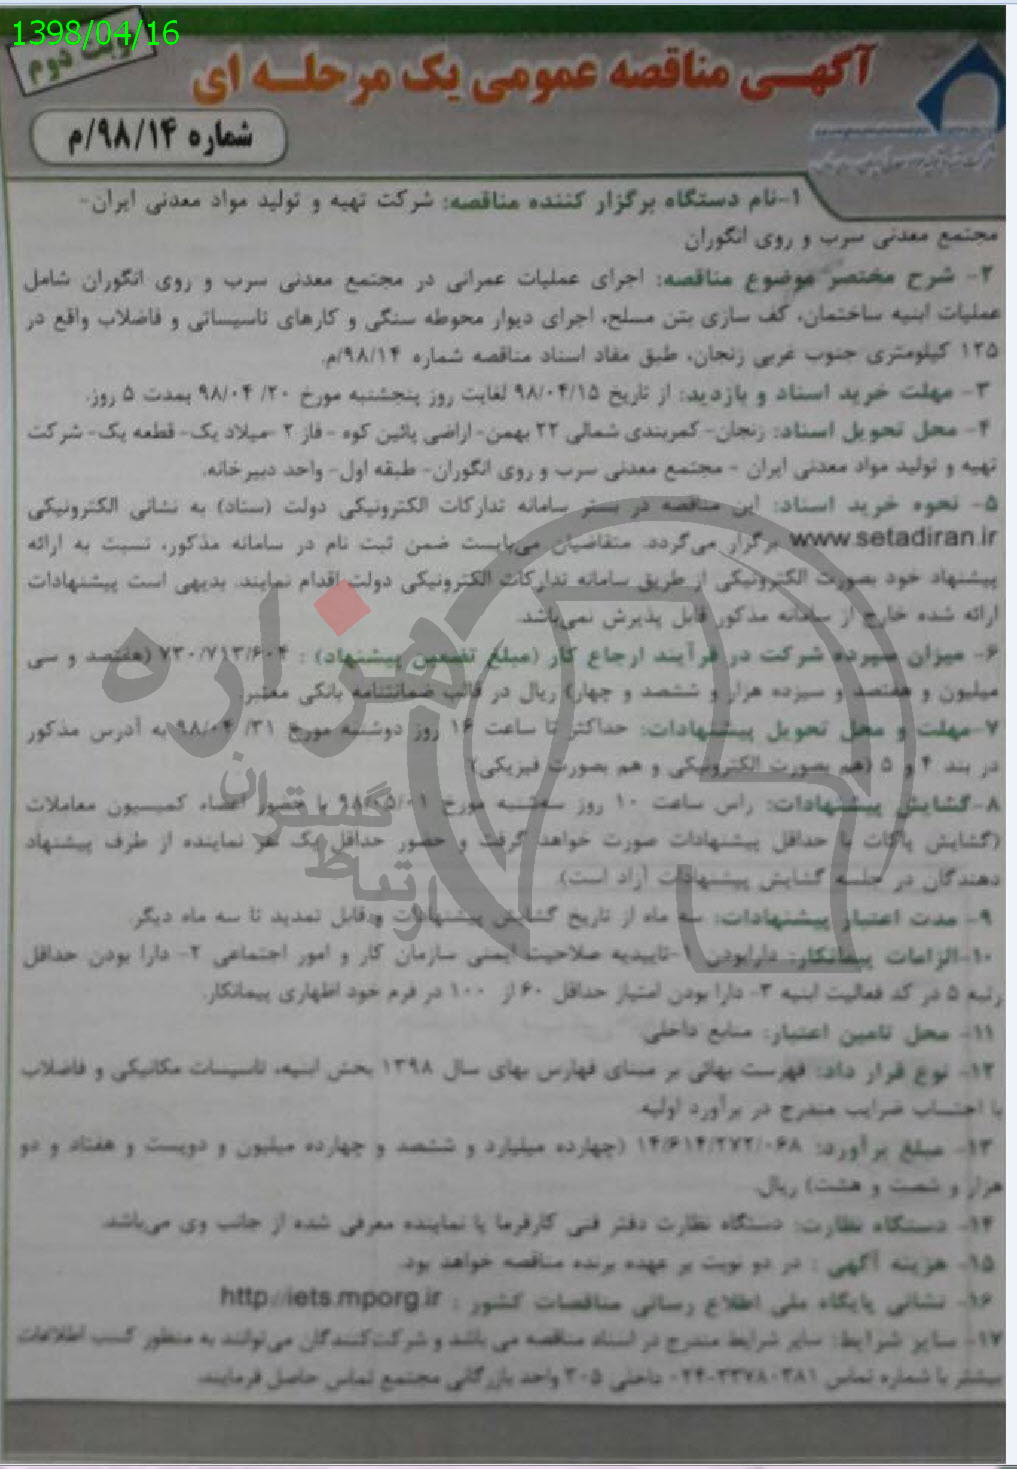 1398/04/16
نوبت دوم
آگهی مناقصه عمومی یک مرحله ای
شماره ۹۸/۱۴/م
۱-نام دستگاه برگزار کننده مناقصه: شرکت تهیه و تولید مواد معدنی ایران-
مجتمع معدنی سرب و روی انگوران
۲- شرح مختصر موضوع مناقصه: اجرای عملیات عمرانی در مجتمع معدنی سرب و روی انگوران شامل
عملیات ابنیه ساختمان، کف سازی بتن مسلح، اجرای دیوار محوطه سنگی و کارهای تاسیساتی و فاضلاب واقع در
۱۲۵ کیلومتری جنوب غربی زنجان، طبق مفاد اسناد مناقصه شماره ۹۸/۱۴/م.
۳- مهلت خرید اسناد و بازدید: از تاریخ ۹۸/۰۴/۱۵ لغایت روز پنجشنبه مورخ ۲۰/ ۹۸/۰۴ بمدت ۵ روز.
۴- محل تحویل اسناد: زنجان- کمربندی شمالی ۲۲ بهمن- اراضی پائین کوه - فاز ۲ -میلاد یک- قطعه یک- شرکت
تهیه و تولید مواد معدنی ایران - مجتمع معدنی سرب و روی انگوران- طبقه اول- واحد دبیرخانه.
۵- نحوه خرید اسناد: این مناقصه در بستر سامانه تدارکات الکترونیکی دولت (ستاد) به نشانی الکترونیکی
www.setadiran.ir برگزار می‌گردد. متقاضیان می‌بایست ضمن ثبت نام در سامانه مذکور، نسبت به ارائه
پیشنهاد خود بصورت الکترونیکی از طریق سامانه تدارکات الکترونیکی دولت اقدام نمایند. بدیهی است پیشنهادات
ارائه شده خارج از سامانه مذکور قابل پذیرش نمی‌باشد.
۶- میزان سپرده شرکت در فرآیند ارجاع کار (مبلغ تضمین پیشنهاد) : ۷۳۰/۷۱۳/۶۰۴ (هفتصد و سی
میلیون و هفتصد و سیزده هزار و ششصد و چهار) ریال در قالب ضمانتنامه بانکی معتبر.
۷-مهلت و محل تحویل پیشنهادات: حداکثر تا ساعت ۱۶ روز دوشنبه مورخ ۳۱/ ۹۸/۰۴ به آدرس مذکور
در بند ۴ و ۵ (هم بصورت الکترونیکی و هم بصورت فیزیکی)
۸-گشایش پیشنهادات: راس ساعت ۱۰ روز سه‌شنبه مورخ ۹۸/۰۵/۰۱ با حضور اعضاء کمیسیون معاملات
(گشایش پاکات با حداقل پیشنهادات صورت خواهد گرفت و حضور حداقل یک نفر نماینده از طرف پیشنهاد
دهندگان در جلسه گشایش پیشنهادات آزاد است).
۹- مدت اعتبار پیشنهادات: سه ماه از تاریخ گشایش پیشنهادات و قابل تمدید تا سه ماه دیگر.
۱۰-الزامات پیمانکار: دارابودن ۱-تاییدیه صلاحیت ایمنی سازمان کار و امور اجتماعی ۲- دارا بودن حداقل
رتبه ۵ در کد فعالیت ابنیه ۳- دارا بودن امتیاز حداقل ۶۰ از ۱۰۰ در فرم خود اظهاری پیمانکار.
۱۱- محل تامین اعتبار: منابع داخلی.
۱۲- نوع قرار داد: فهرست بهائی بر مبنای فهارس بهای سال ۱۳۹۸ بخش ابنیه، تاسیسات مکانیکی و فاضلاب
با احتساب ضرایب مندرج در برآورد اولیه.
۱۳- مبلغ برآورد: ۱۴/۶۱۴/۲۷۲/۰۶۸ (چهارده میلیارد و ششصد و چهارده میلیون و دویست و هفتاد و دو
هزار و شصت و هشت) ریال.
۱۴- دستگاه نظارت: دستگاه نظارت دفتر فنی کارفرما یا نماینده معرفی شده از جانب وی می‌باشد.
۱۵- هزینه آگهی : در دو نوبت بر عهده برنده مناقصه خواهد بود.
۱۶- نشانی پایگاه ملی اطلاع رسانی مناقصات کشور : http://iets.mporg.ir
۱۷- سایر شرایط: سایر شرایط مندرج در اسناد مناقصه می باشد و شرکت‌کنندگان می‌توانند به منظور کسب اطلاعات
بیشتر با شماره تماس ۰۲۴-۳۳۷۸۰۳۸۱ داخلی ۳۰۵ واحد بازرگانی مجتمع تماس حاصل فرمایند.
هزاره
گستران
ارتباط